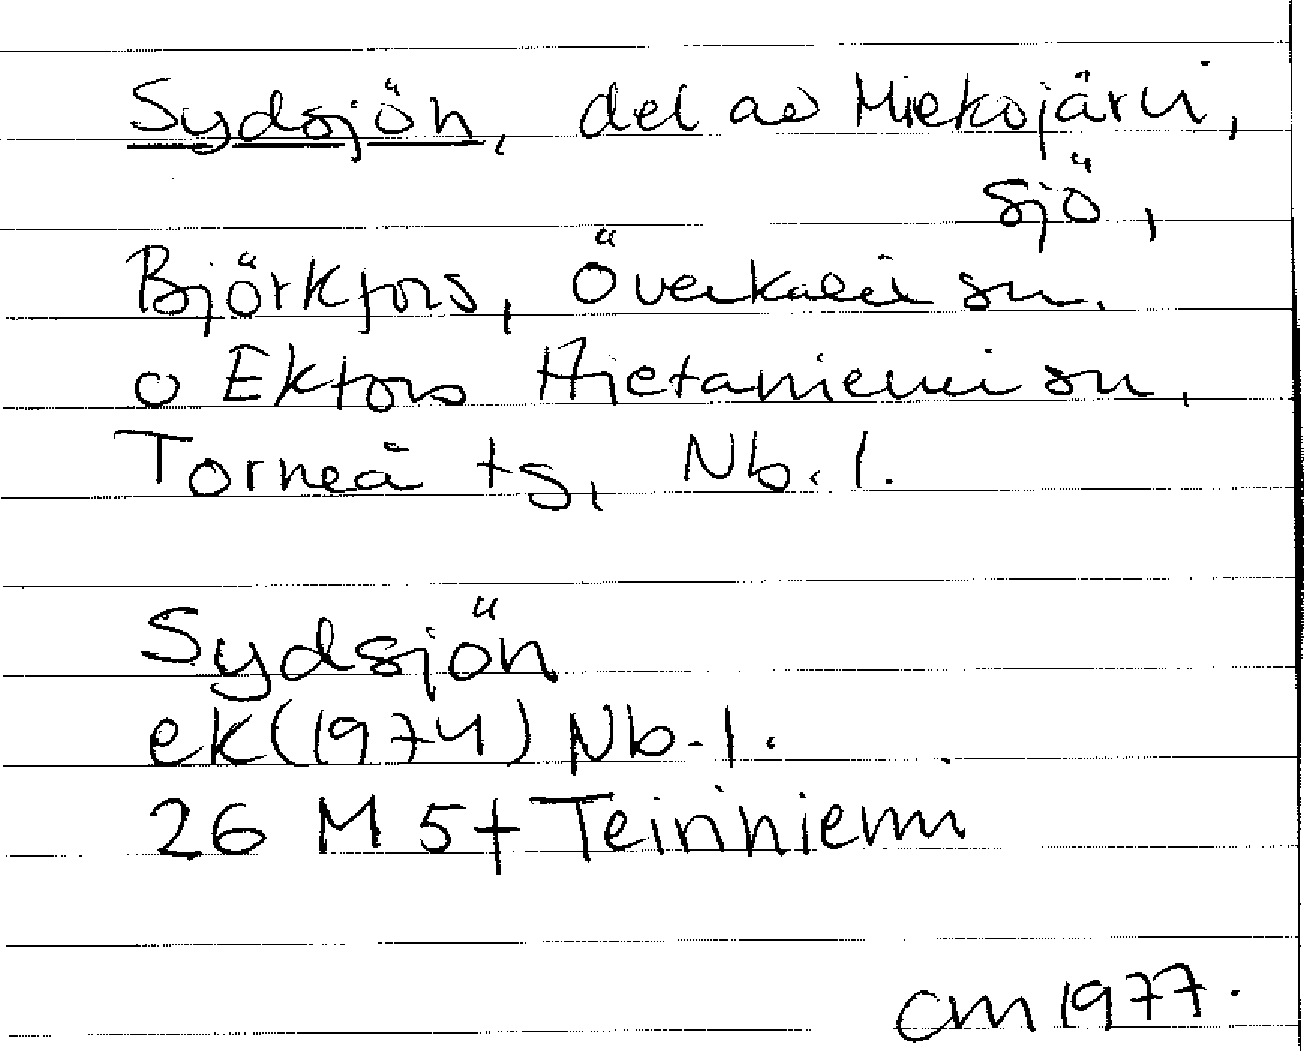 Sydsjön, del av Miekojärvi,
sjö,
Björkfors, Överkalix sn.
o Ekfors Hietaniemi sn,
Torneå tg, Nb. l.
Sydsjön
ek (1974) Nb. l.
26 M 5f Teiriniemi
CM 1977.